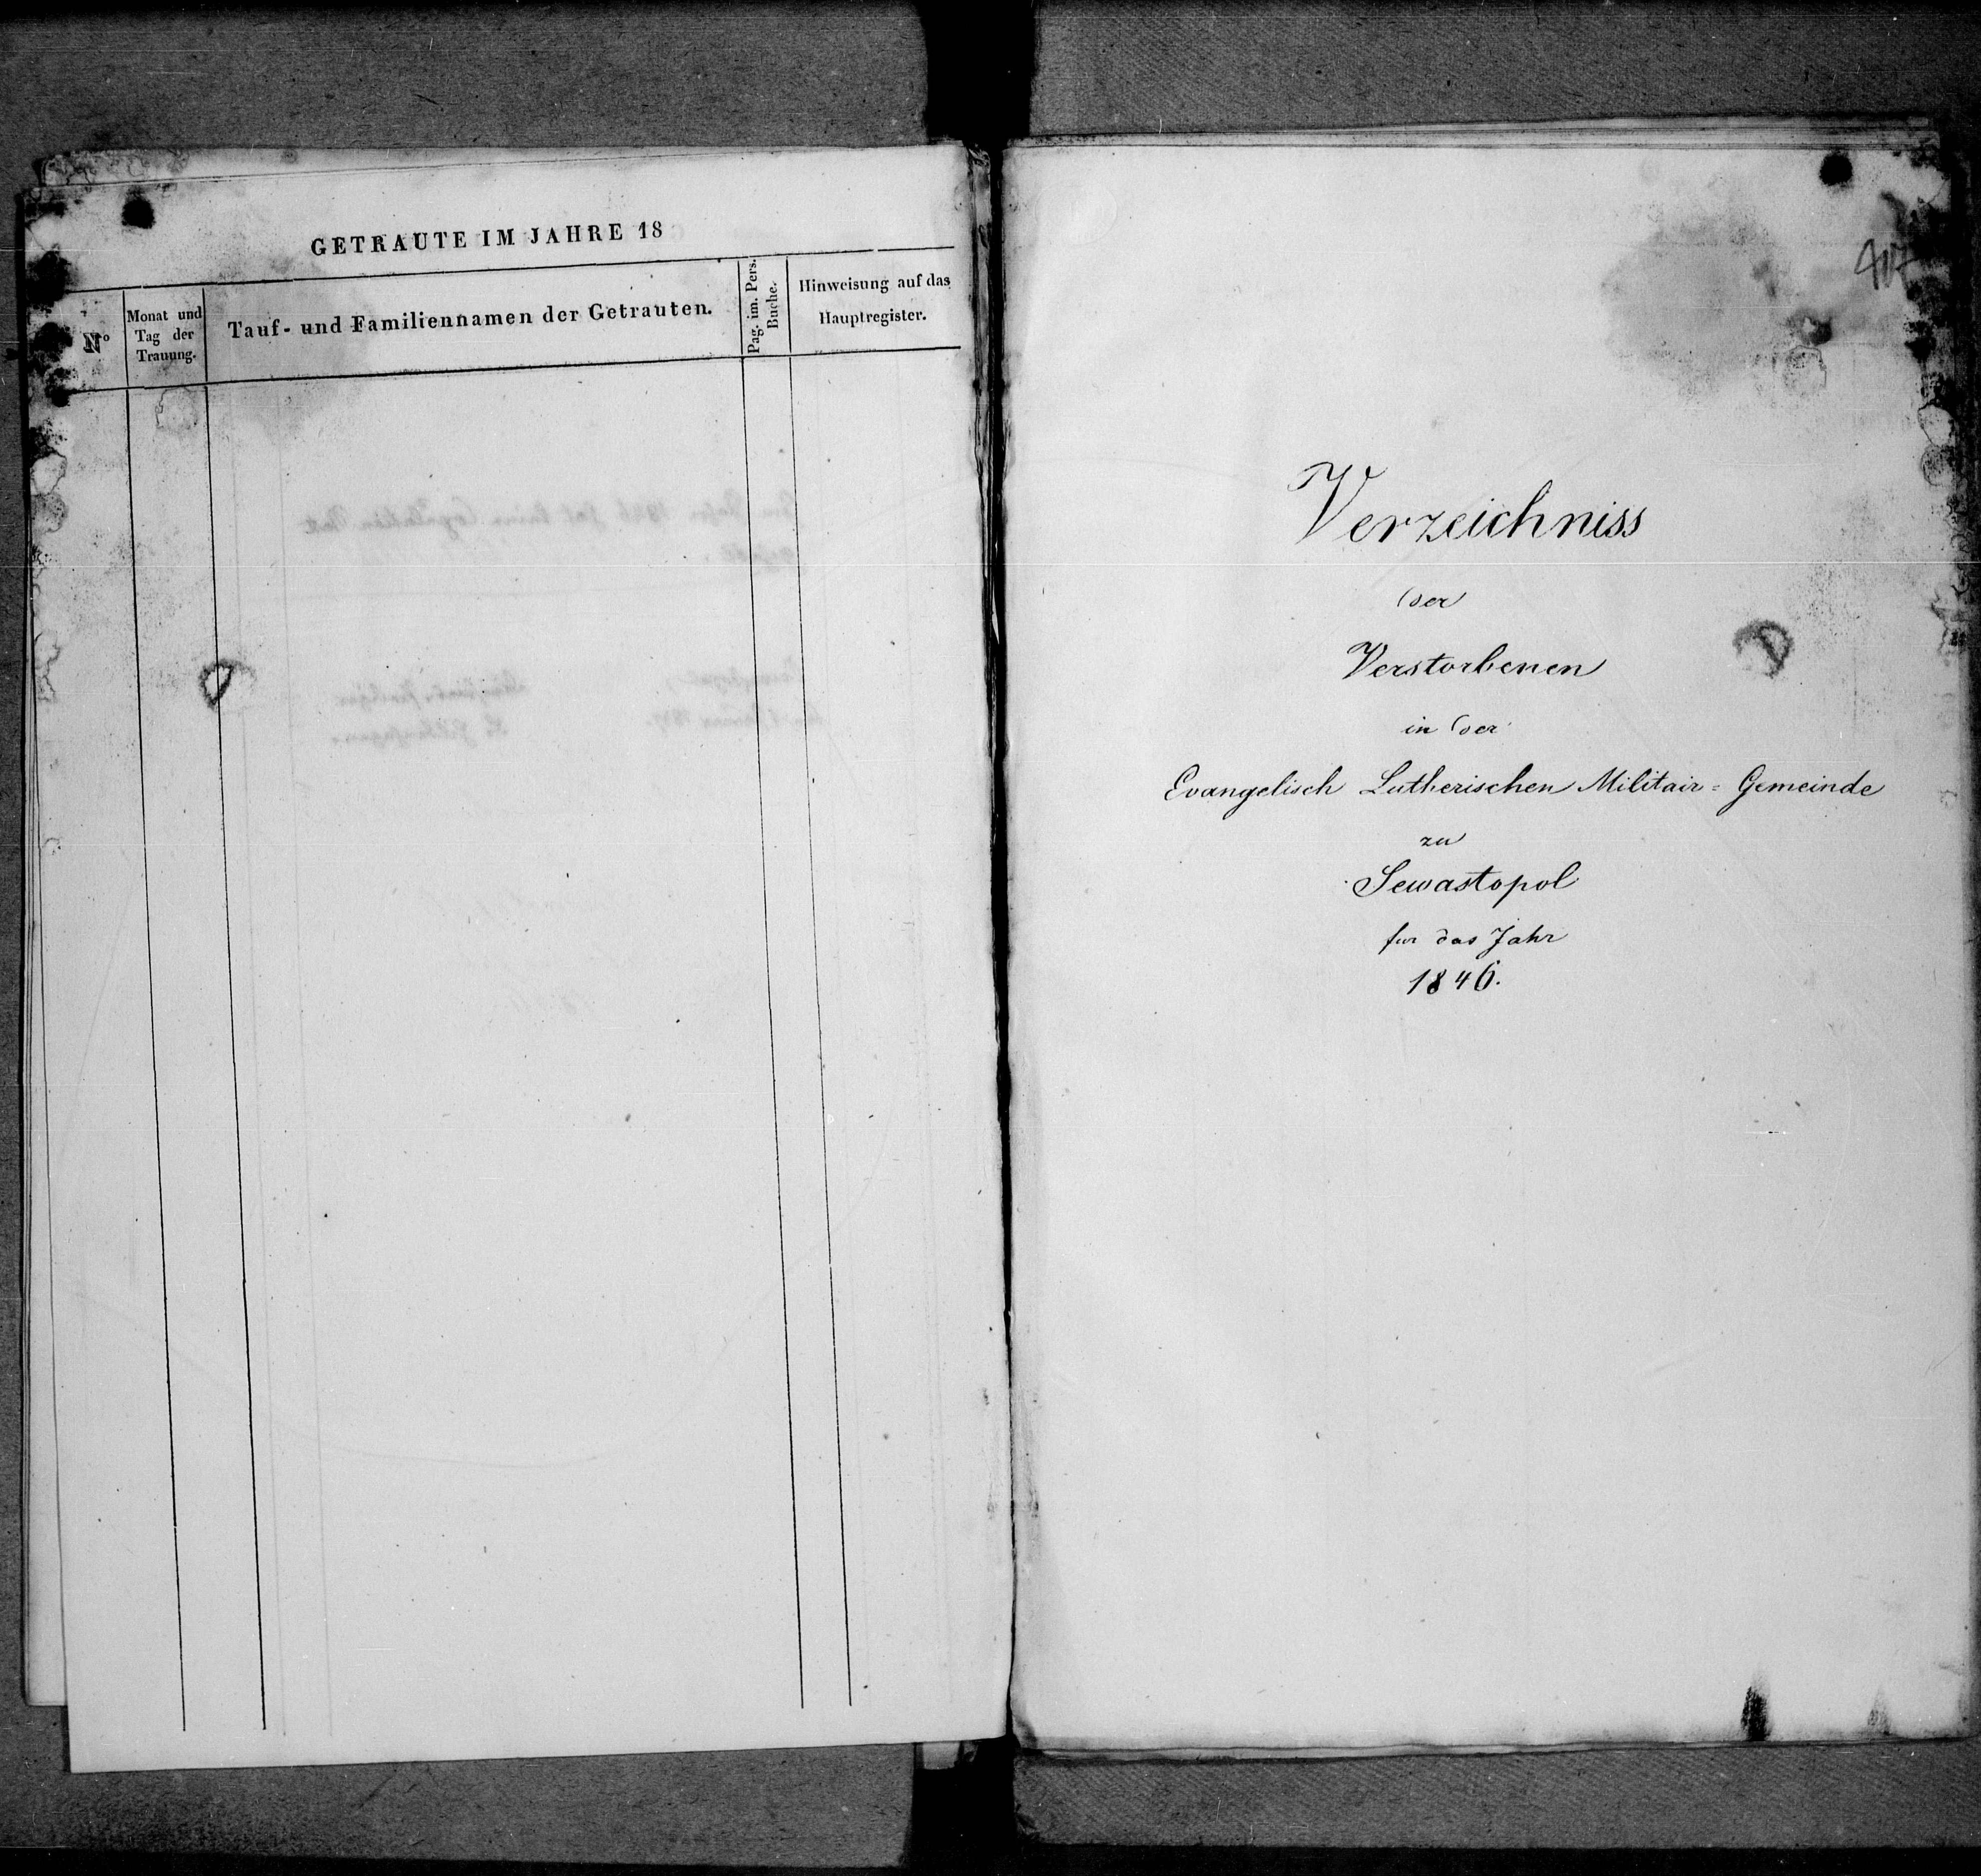 GETRAUTE IM JAHRE 18
Nº
Monat und
Tag der
Trauung.
Tauf- und Familiennamen der Getrauten.
Pag. im. Pers.
Buche.
Hinweisung auf das
Hauptregister.
Verzeichniss
der
Verstorbenen
in der
Evangelisch Lutherischen Militair= Gemeinde
zu
Sewastopol
fur das Jahr
1846.